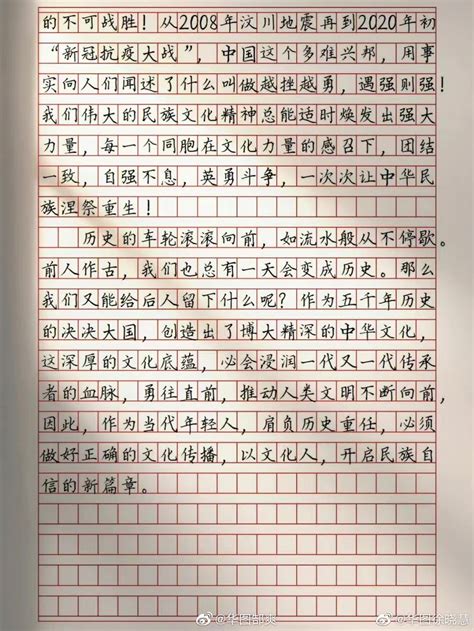 的不可战胜！从2008年汶川地震再到2020年初
“新冠抗疫大战”，中国这个多难兴邦，用事
实向人们阐述了什么叫做越挫越勇，遇强则强！
我们伟大的民族文化精神总能适时焕发出强大
力量，每一个同胞在文化力量的感召下，团结
一致，自强不息，英勇斗争，一次次让中华民
族涅槃重生！
历史的车轮滚滚向前，如流水般从不停歇。
前人作古，我们也总有一天会变成历史。那么
我们又能给后人留下什么呢？作为五千年历史
的泱泱大国，创造出了博大精深的中华文化，
这深厚的文化底蕴，必会浸润一代又一代传承
者的血脉，勇往直前，推动人类文明不断向前，
因此，作为当代年轻人，肩负历史重任，必须
做好正确的文化传播，以文化人，开启民族自
信的新篇章。
@华图郜爽
@华图徐晓慧